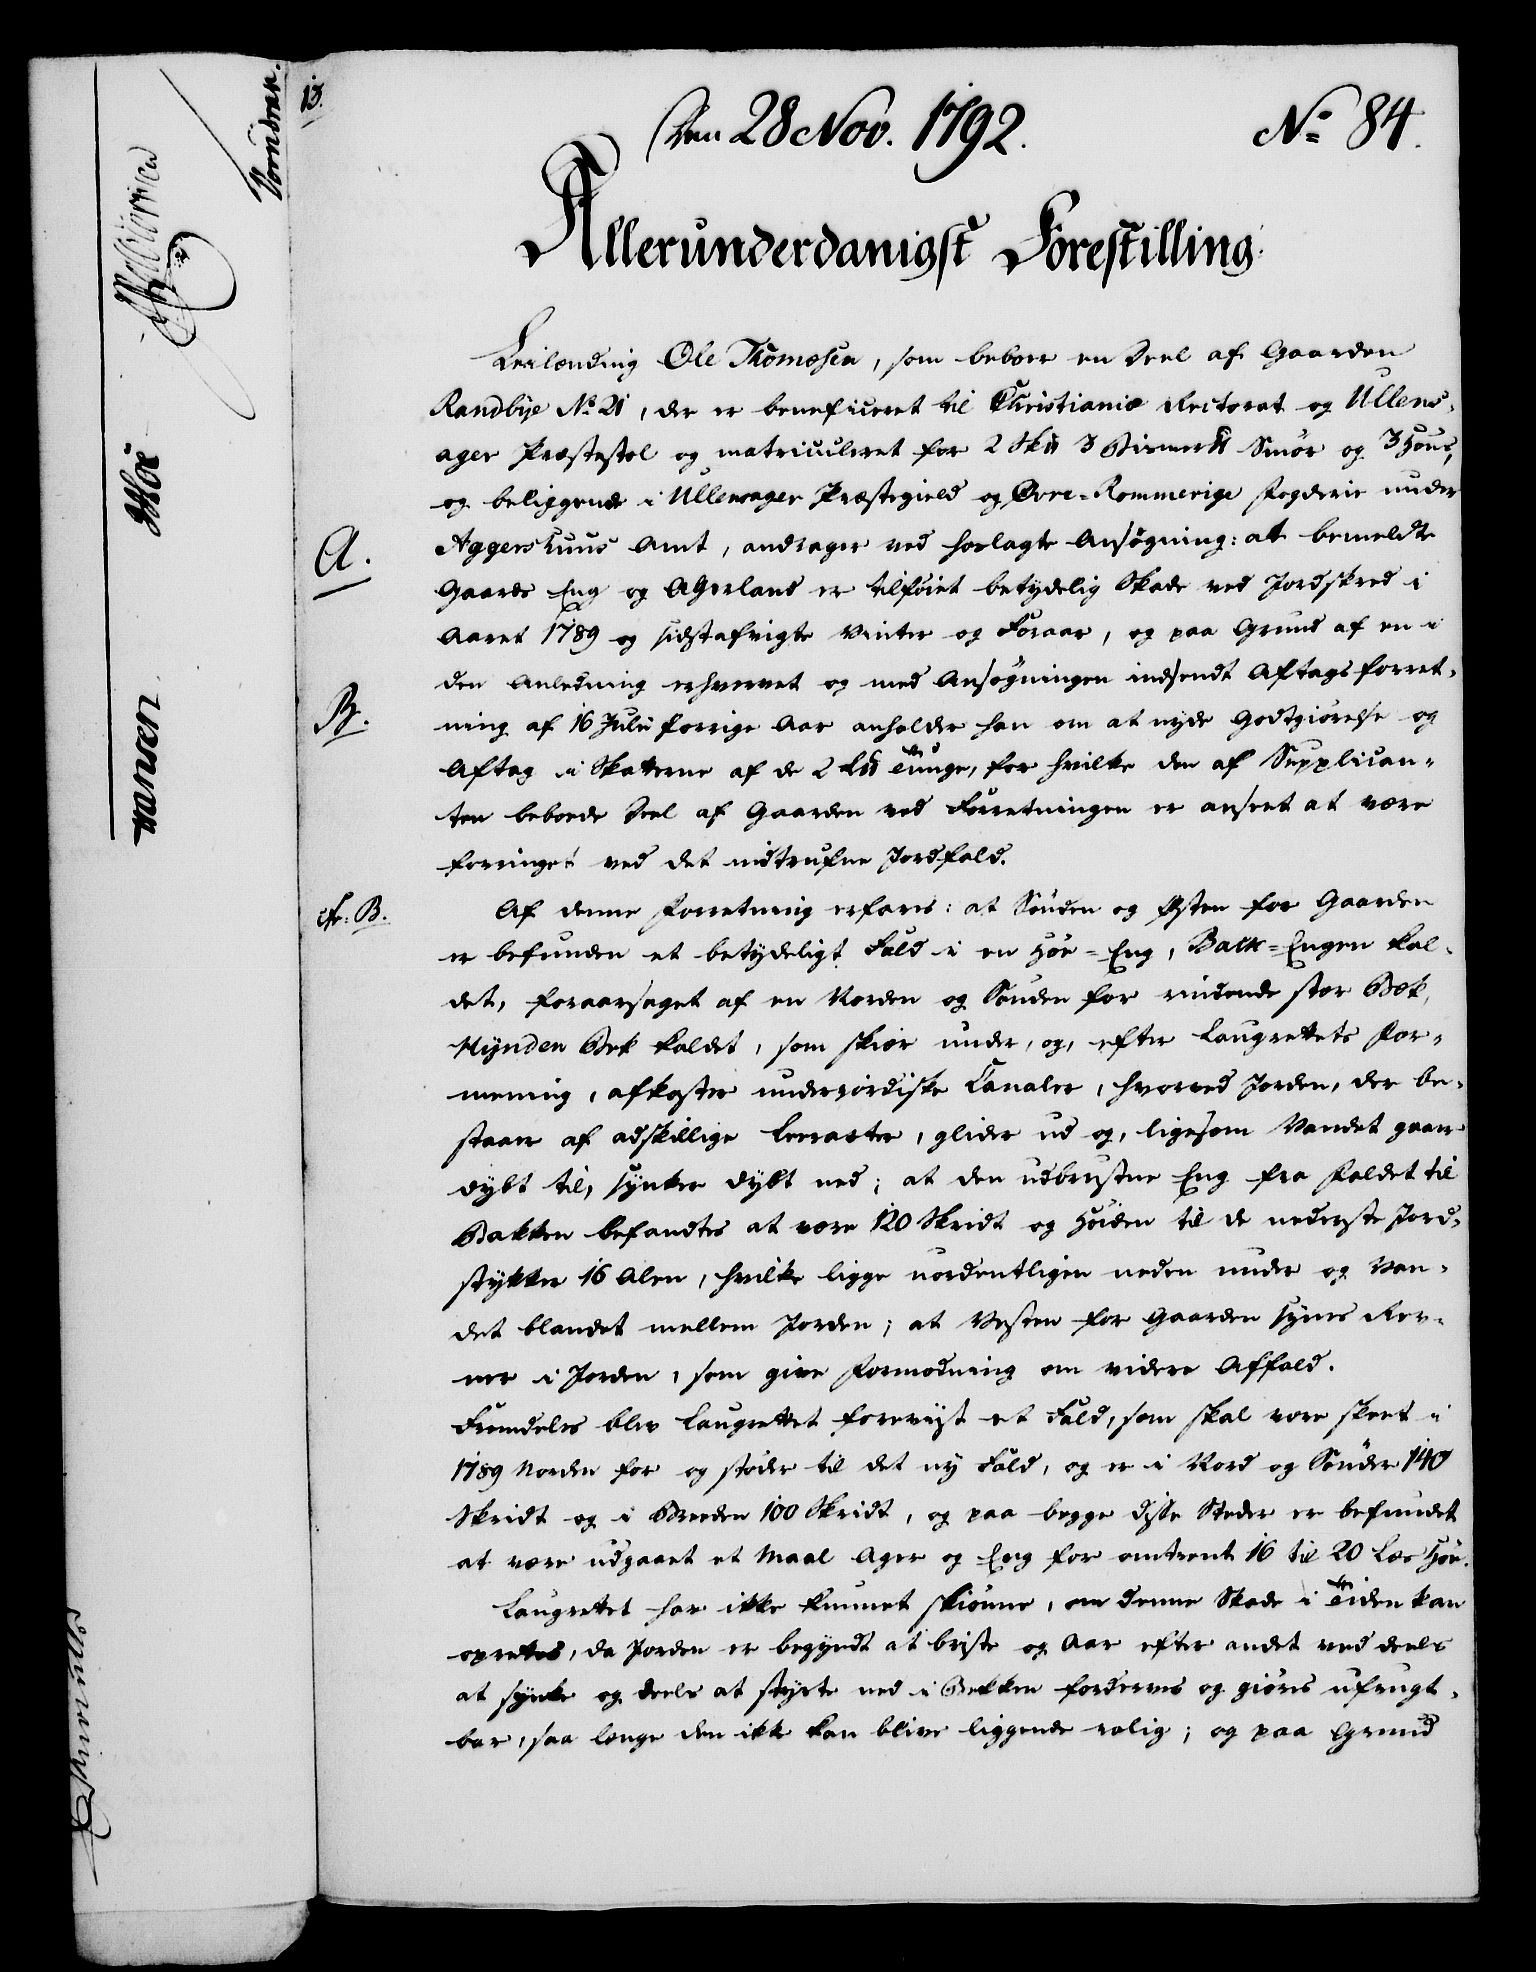 13.
Den 28 Nov. 1792. No 84.
Allerunderdanigst Forestilling.
Leilænding Ole Thomæsen, som beboer en Deel af Gaarden
Randbye No 21, der er beneficeret til Christiania Rectorat og Ullens-
ager Præstestol og matriculeret for 2 Sk℔ 3 Bismer℔ Smör og 3 Huus,
og beliggende i Ullensager Præstegield og Øvre-Rommerige Fogderie under
A.
Aggershuus Amt, andrager ved hoslagte Ansögning: at bemeldte
Gaards Eng og Agerland er tilföiet betydelig Skade ved Jordskred i
Aaret 1789 og sidstafvigte Vinter og Foraar, og paa Grund af en i
den Anledning erhvervet og med Ansögningen indsendt Aftagsforret-
B.
ning af 16 Julii forrige Aar anholder han om at nyde Godtgiörelse og
Aftag i Skatterne af de 2 L℔ Tunge, for hvilke den af Supplican-
ten beboede Deel af Gaarden ved Forretningen er anseet at være
forringet ved det indtrufne Jordfald.
cfr: B.
Af denne Forretning erfares: at Sönden og Østen for Gaarden
er befunden et betydeligt Fald i en Höe-Eng, Bakk-Engen kal-
det, foraarsaget af en Norden og Sönden for rindende stor Bæk,
Mynden Bek kaldet, som skiær under, og, efter Laugrettets For-
mening, afkaster underjordiske Canaler, hvorved Jorden, der be-
staaer af adskillige Leerarter, glider ud og, ligesom Vandet gaaer
dybt til, synker dybt ned; at den udbrustne Eng fra Faldet til
Bakken befandtes at være 120 Skridt og Höiden til de nederste Jord-
stykker 16 Alen, hvilke ligge uordentligen neden under og Van-
det blandet mellem Jorden; at Vesten for Gaarden synes Rev-
ner i Jorden, som give Formodning om videre Affald.
Fremdeles blev Laugrettet foreviist et Fald, som skal være skeet i
1789 Norden for og stöder til det ny Fald, og er i Nord og Sönder 140
Skridt og i Breeden 100 Skridt, og paa begge disse Steder er befundet
at være udgaaet et Maal Ager og Eng for omtrent 16 til 20 Læs Höe.
Laugrettet har ikke kunnet skiönne, om denne Skade i Tiden kan
oprettes, da Jorden er begyndt at briste og Aar efter andet ved deels
at synke og deels at styrte ned i Bekken fordærves og giöres ufrugt-
bar, saa længe den ikke kan blive liggende rolig; og paa Grund